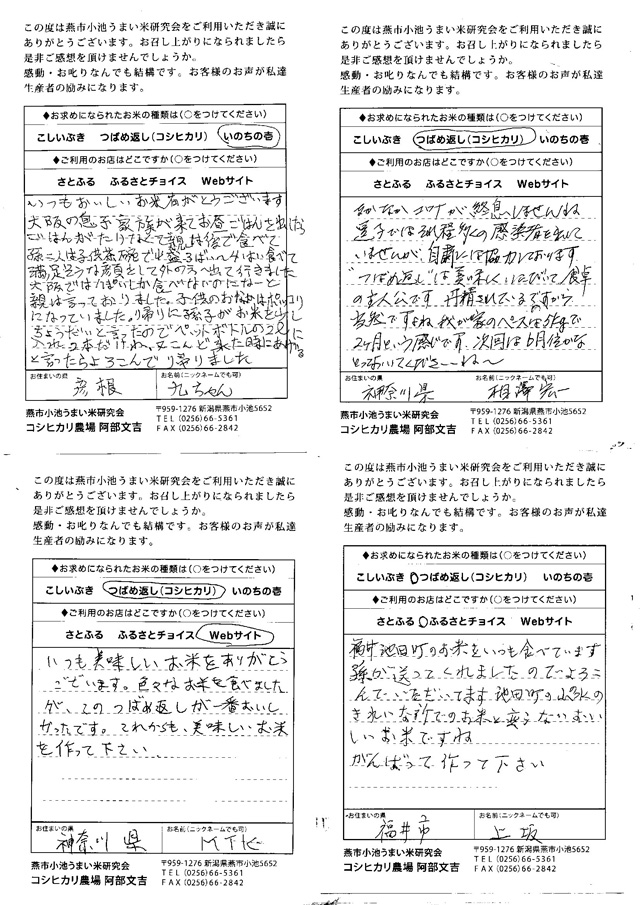 この度は燕市小池うまい米研究会をご利用いただき誠に
ありがとうございます。お召し上がりになられましたら
是非ご感想を頂けませんでしょうか。
感動・お叱りなんでも結構です。お客様のお声が私達
生産者の励みになります。
◆お求めになられたお米の種類は（○をつけてください）
こしいぶき つばめ返し(コシヒカリ) いのちの壱
◆ご利用のお店はどこですか（○をつけてください）
さとふる ふるさとチョイス Webサイト
いつもおいしいお米ありがとうございます
大阪の息子家族が来てお昼ごはんを出しても
ごはんがたりなくて親は後で食べて
孫二人は子供茶碗で山盛
満足そうな顔をして外の方へ出て行きました
大阪では
親は言っておりました。子供のおなかは
になっていました。帰りに孫子がお米を少し
ちょうだいと言ったのでペットボトルの2ℓに
入れ2本だけ
と言ったらよろこんで帰りました
お住まいの県 お名前(ニックネームでも可)
彦根
燕市小池うまい米研究会
コシヒカリ農場 阿部文吉
〒959-1276 新潟県燕市小池5652
TEL (0256)66-5361
FAX (0256)66-2842
この度は燕市小池うまい米研究会をご利用いただき誠に
ありがとうございます。お召し上がりになられましたら
是非ご感想を頂けませんでしょうか。
感動・お叱りなんでも結構です。お客様のお声が私達
生産者の励みになります。
◆お求めになられたお米の種類は（○をつけてください）
こしいぶき つばめ返し(コシヒカリ) いのちの壱
◆ご利用のお店はどこですか（○をつけてください）
さとふる ふるさとチョイス Webサイト
なかなかコロナが終息しませんね
逗子ではそれ程多くの感染者を出して
いませんが、自粛には協力しております
"つばめ返し"は美味しくいただいて食卓
の主人公です。
当然ですよね 我が家のペースは5kgで
2ヶ月という感じです。次回は6月位かな
とっておいてくださーいね〜
お住まいの県 お名前(ニックネームでも可)
神奈川県 相澤宏一
燕市小池うまい米研究会
コシヒカリ農場 阿部文吉
〒959-1276 新潟県燕市小池5652
TEL (0256)66-5361
FAX (0256)66-2842
この度は燕市小池うまい米研究会をご利用いただき誠に
ありがとうございます。お召し上がりになられましたら
是非ご感想を頂けませんでしょうか。
感動・お叱りなんでも結構です。お客様のお声が私達
生産者の励みになります。
◆お求めになられたお米の種類は（○をつけてください）
こしいぶき つばめ返し(コシヒカリ) いのちの壱
◆ご利用のお店はどこですか（○をつけてください）
さとふる ふるさとチョイス Webサイト
いつも美味しいお米をありがとう
ございます。色々なお米を食べました
が、このつばめ返しが一番おいし
かったです。これからも、美味しいお米
を作って下さい。
お住まいの県 お名前(ニックネームでも可)
神奈川県
燕市小池うまい米研究会
コシヒカリ農場 阿部文吉
〒959-1276 新潟県燕市小池5652
TEL (0256)66-5361
FAX (0256)66-2842
この度は燕市小池うまい米研究会をご利用いただき誠に
ありがとうございます。お召し上がりになられましたら
是非ご感想を頂けませんでしょうか。
感動・お叱りなんでも結構です。お客様のお声が私達
生産者の励みになります。
◆お求めになられたお米の種類は（○をつけてください）
こしいぶき つばめ返し(コシヒカリ) いのちの壱
◆ご利用のお店はどこですか（○をつけてください）
さとふる ふるさとチョイス Webサイト
福井池田町のお米をいつも食べています
孫が送ってくれましたのでよろこ
んでいただいてます 池田町の山水の
きれいな所でのお米と変らないおい
しいお米ですね
がんばって作って下さい
お住まいの県 お名前(ニックネームでも可)
福井市 上坂
燕市小池うまい米研究会
コシヒカリ農場 阿部文吉
〒959-1276 新潟県燕市小池5652
TEL (0256)66-5361
FAX (0256)66-2842